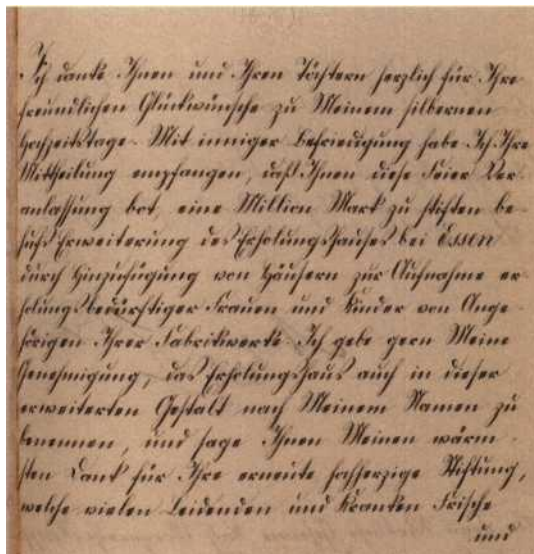 Ich danke Ihnen und Ihren Töchtern herzlich für Ihre
freundlichen Glückwünsche zu Meinem silbernen
Hochzeitstage. Mit inniger Befriedigung habe Ich Ihre
Mittheilung empfangen, daß Ihnen diese Feier Ver-
anlassung bot, eine Million Mark zu stiften be-
hufs Erweiterung des Erholungshauses bei Essen
durch Hinzufügung von Häusern zur Aufnahme er-
holungsbedürftiger Frauen und Kinder von Ange-
hörigen Ihrer Fabrikwerke. Ich gebe gern Meine
Genehmigung, das Erholungshaus auch in dieser
erweiterten Gestalt nach Meinem Namen zu
benennen, und sage Ihnen Meinen wärm-
sten Dank für Ihre erneute hochherzige Stiftung,
welche vielen Leidenden und Kranken Frische
und